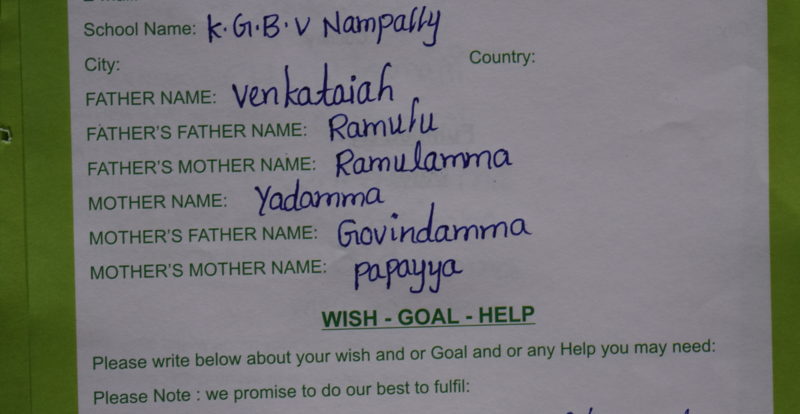 School Name: K.G.B.V Nampally
City: Country:
FATHER NAME: Venkataiah
FATHER'S FATHER NAME: Ramulu
FATHER'S MOTHER NAME: Ramulamma
MOTHER NAME: Yadamma
MOTHER'S FATHER NAME: Govindamma
MOTHER'S MOTHER NAME: papayya
WISH - GOAL - HELP
Please write below about your wish and or Goal and or any Help you may need:
Please Note : we promise to do our best to fulfil: